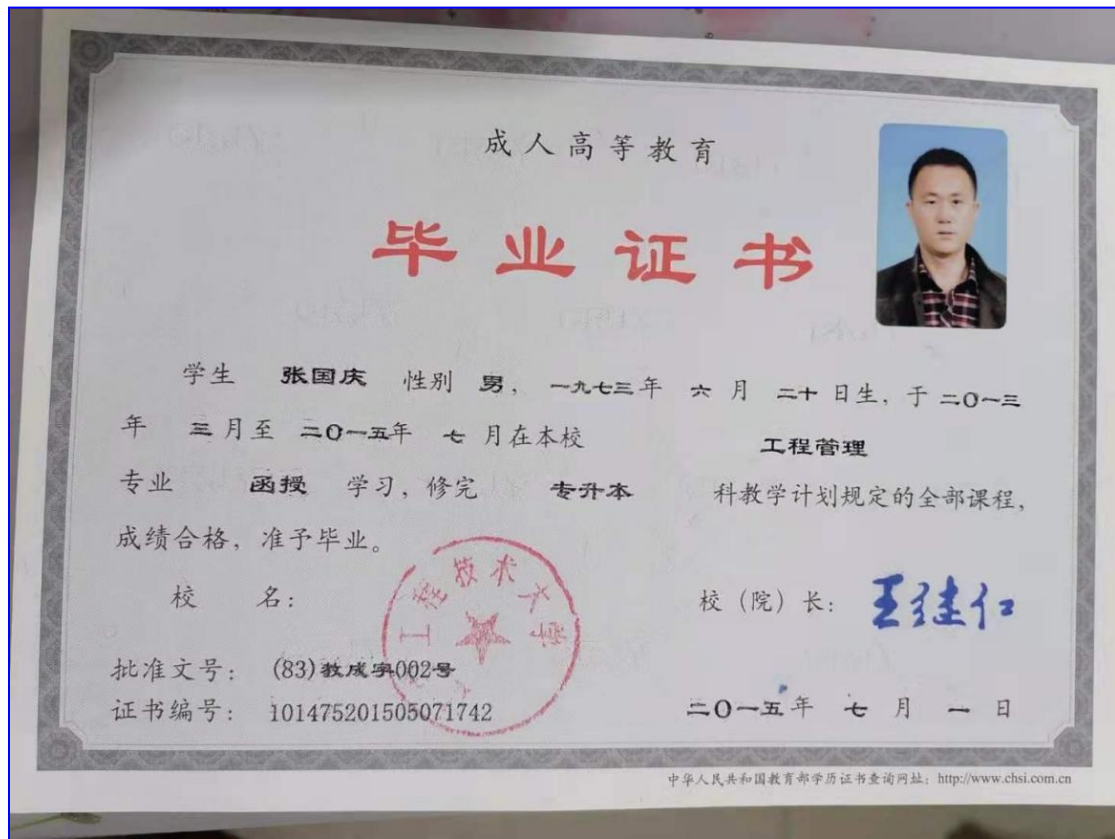 成人高等教育
毕业证书
学生 张国庆 性别 男, 一九七三年 六 月 二十 日生, 于 二〇一三
年 三月至 二〇一五年 七 月在本校 工程管理
专业 函授 学习, 修完 专升本 科教学计划规定的全部课程,
成绩合格, 准予毕业。
校 名:
工程技术大学
校(院)长: 王继仁
批准文号: (83)教成字002号
证书编号: 101475201505071742
二〇一五年 七 月 一 日
中华人民共和国教育部学历证书查询网址: http://www.chsi.com.cn